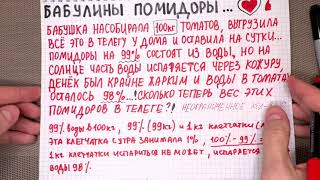 БАБУЛИНЫ ПОМИДОРЫ...
БАБУШКА НАСОБИРАЛА 100кг ТОМАТОВ, ВЫГРУЗИЛА
ВСЁ ЭТО В ТЕЛЕГУ У ДОМА И ОСТАВИЛА НА СУТКИ...
ПОМИДОРЫ НА 99% СОСТОЯТ ИЗ ВОДЫ, НО НА
СОЛНЦЕ ЧАСТЬ ВОДЫ ИСПАРЯЕТСЯ ЧЕРЕЗ КОЖУРУ.
ДЕНЁК БЫЛ КРАЙНЕ ЖАРКИМ И ВОДЫ В ТОМАТАХ
ОСТАЛОСЬ 98%...! СКОЛЬКО ТЕПЕРЬ ВЕС ЭТИХ
ПОМИДОРОВ В ТЕЛЕГЕ?!
99% ВОДЫ В 100кг, 99% (99кг) И 1кг КЛЕТЧАТКИ
ЭТА КЛЕТЧАТКА С УТРА ЗАНИМАЛА 1%, 100% - 99%
1кг КЛЕТЧАТКИ ИСПАРИТЬСЯ НЕ МОЖЕТ, ИСПАРЯЕТСЯ
ВОДЫ 98%